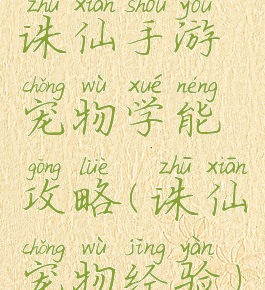 zhū xiān shǒu yóu
诛仙手游
chǒng wù xué néng
宠物学能
gōng lüè zhū xiān
攻略(诛仙
chǒng wù jīng yàn
宠物经验)